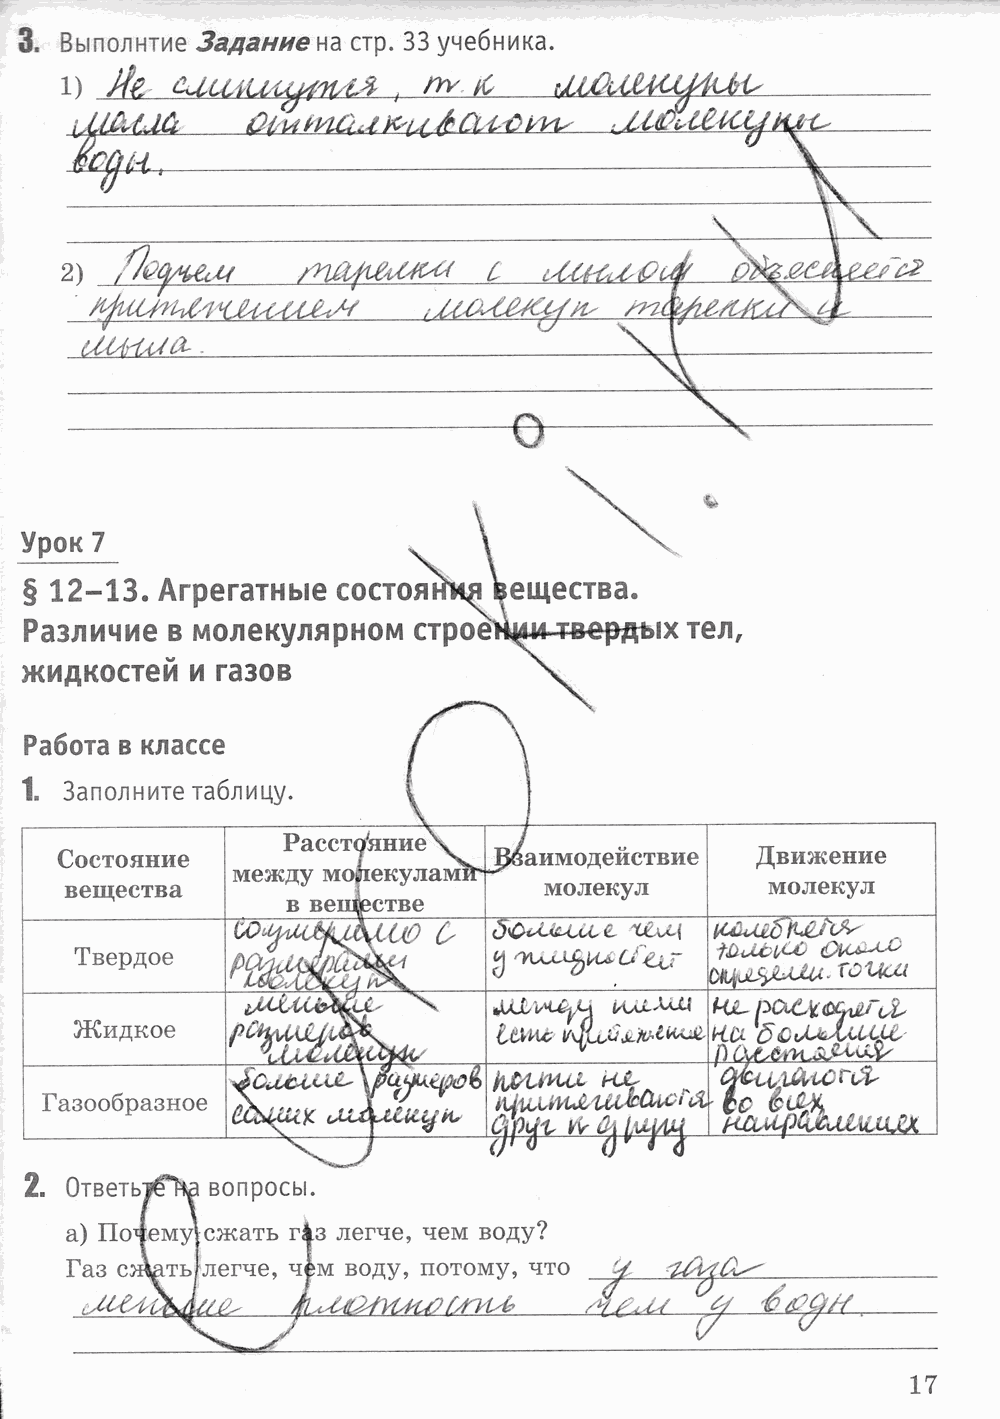 3. Выполнтие Задание на стр. 33 учебника.
1) Не слипнутся, т.к молекулы
масла отталкивают молекулы
воды.
2) Подъем тарелки с мылом объясняется
притяжением молекул тарелки и
мыла.
Урок 7
§ 12–13. Агрегатные состояния вещества.
Различие в молекулярном строении твердых тел,
жидкостей и газов
Работа в классе
1. Заполните таблицу.
Состояние вещества
Расстояние между молекулами в веществе
Взаимодействие молекул
Движение молекул
Твердое
соизмеримо с размерами молекул
больше чем у жидкостей
колеблется только около определен. точки
Жидкое
меньше размеров молекул
между ними есть притяжение
не расходятся на большие расстояния
Газообразное
больше размеров самих молекул
почти не притягиваются друг к другу
двигаются во всех направлениях
2. Ответьте на вопросы.
а) Почему сжать газ легче, чем воду?
Газ сжать легче, чем воду, потому, что у газа
меньше плотность чем у воды.
17